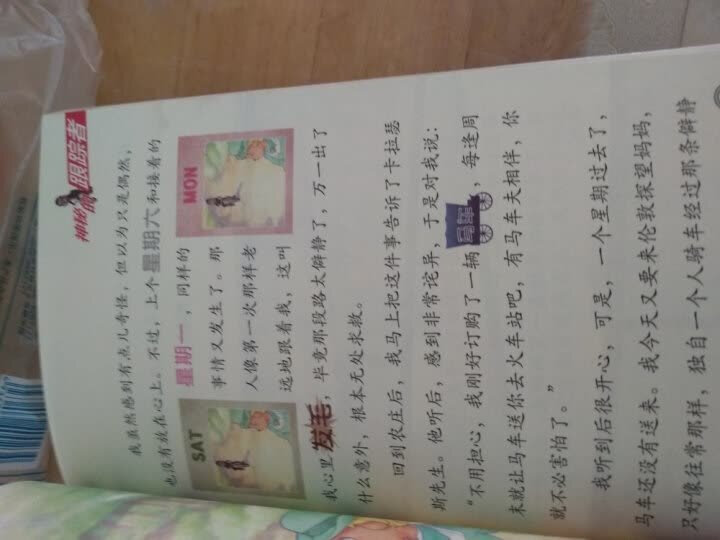 神秘的跟踪者
我虽然感到有点儿奇怪，但以为只是偶然，
也没有放在心上。不过，上个星期六和接着的
SAT
星期一，同样的
MON
事情又发生了。那
人像第一次那样老
远地跟着我，这叫
我心里发毛，毕竟那段路太僻静了，万一出了
什么意外，根本无处求救。
回到农庄后，我马上把这件事告诉了卡拉瑟
斯先生。他听后，感到非常诧异，于是对我说：
“不用担心，我刚好订购了一辆马车，每逢周
末就让马车送你去火车站吧，有马车夫相伴，你
就不必害怕了。”
我听到后很开心，可是，一个星期过去了，
马车还没有送来。我今天又要来伦敦探望妈妈，
只好像往常那样，独自一个人骑车经过那条僻静